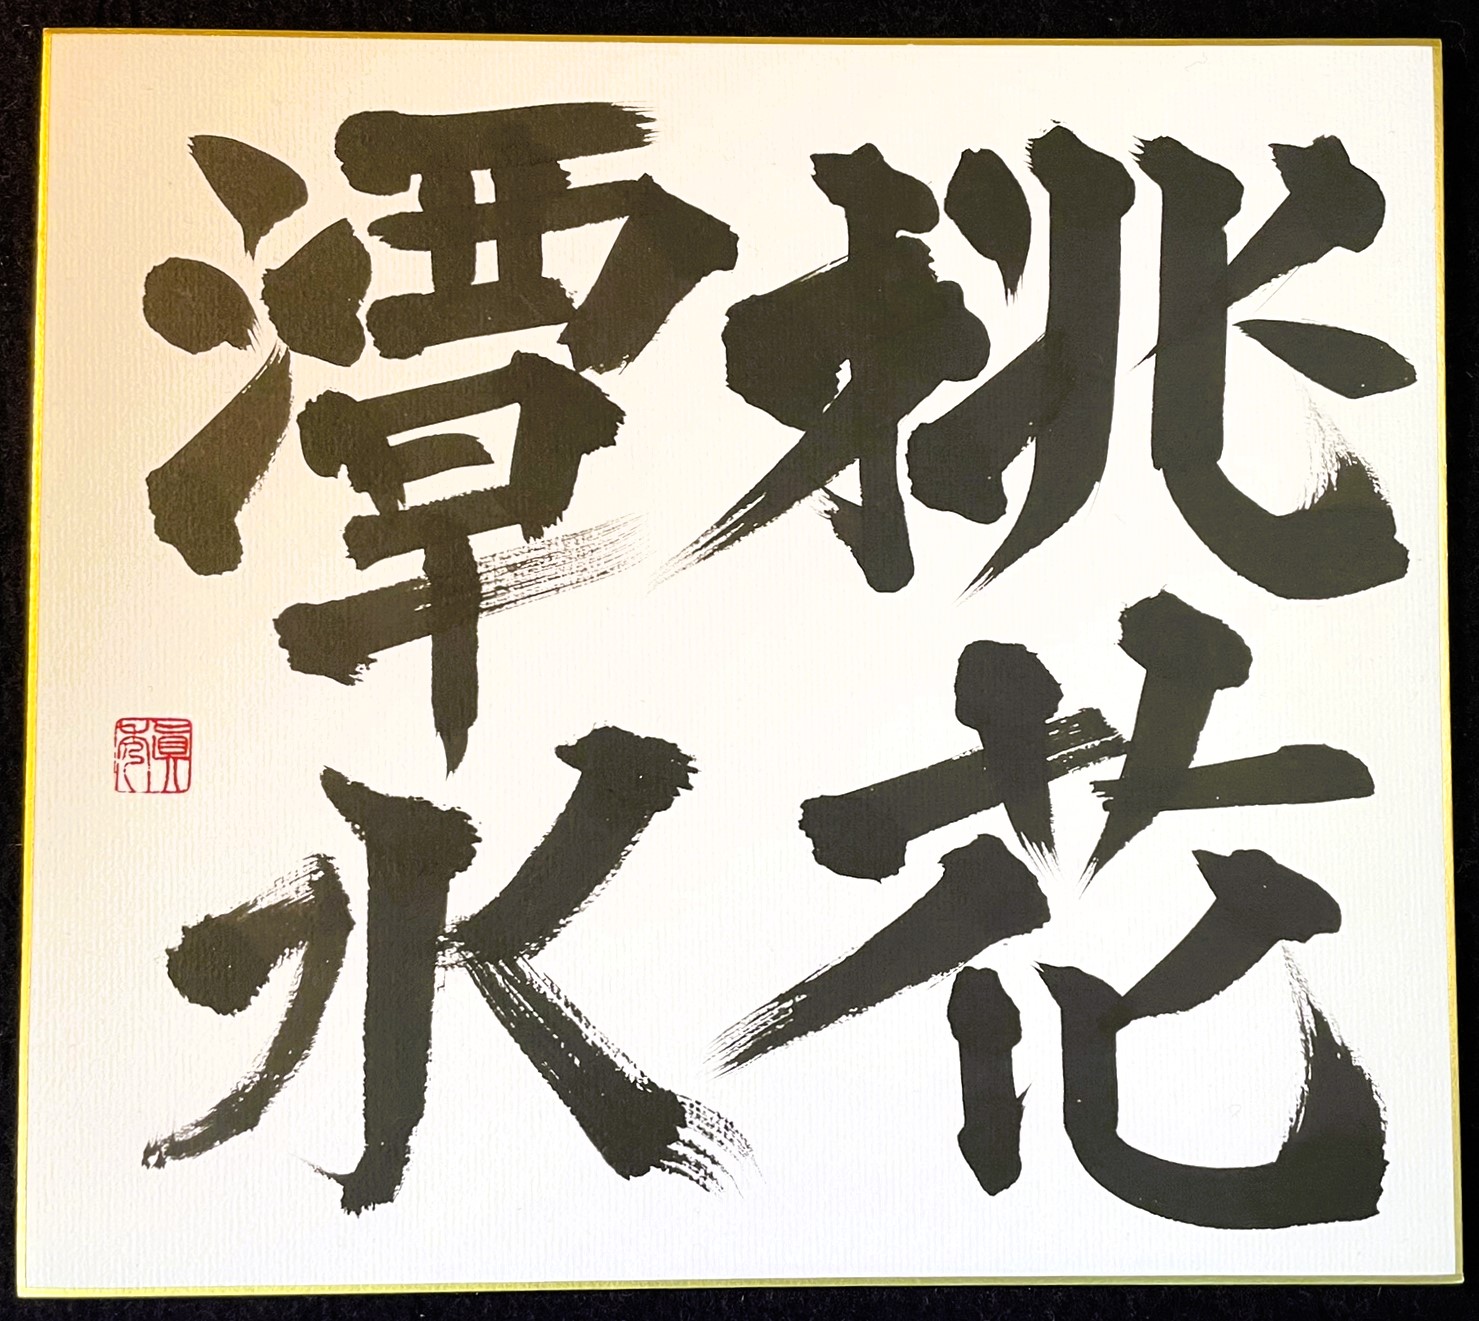 桃花
潭水